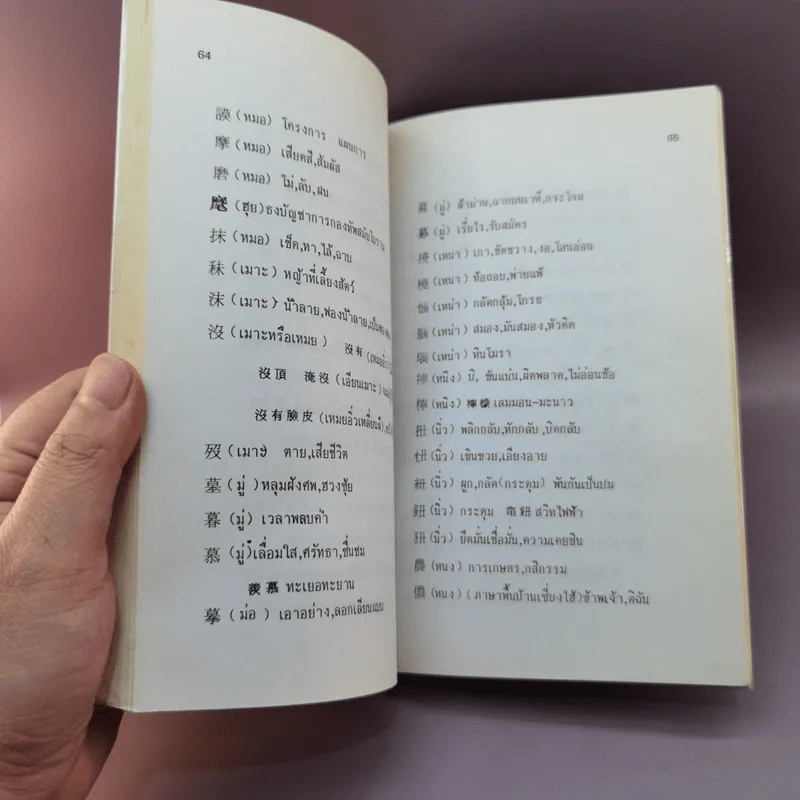 64
謨 (หมอ) โครงการ แผนการ
摩 (หมอ) เสียดสี,สัมผัส
磨 (หมอ) โม่,ลับ,ฝน
麾 (ฮุย) ธงบัญชาการกองทัพสมัยโบราณ
抹 (หมอ) เช็ด,ทา,ไล้,ฉาบ
秣 (เมาะ) หญ้าที่เลี้ยงสัตว์
沫 (เมาะ) น้ำลาย,ฟองน้ำลาย,เป็นฟอง
沒 (เมาะหรือเหมย) 沒有 (เหมยอิ่ว
沒頂 淹沒 (เอียนเมาะ)
沒有臉皮 (เหมยอิ่วเหลี่ยนผี)
歿 (เมาะ) ตาย,เสียชีวิต
墓 (มู่) หลุมฝังศพ,ฮวงซุ้ย
暮 (มู่) เวลาพลบค่ำ
慕 (มู่) เลื่อมใส,ศรัทธา,ชื่นชม
羨慕 ทะเยอทะยาน
摹 (ม่อ) เอาอย่าง,ลอกเลียนแบบ
65
幕 (มู่) ผ้าม่าน,ฉากบนเวที,กระโจม
募 (มู่) เรี่ยไร,รับสมัคร
撓 (เหนา) เกา,ขัดขวาง,งอ,โอนอ่อน
橈 (เหนา) ท้อถอย,พ่ายแพ้
惱 (เหน่า) กลัดกลุ้ม,โกรธ
腦 (เหน่า) สมอง,มันสมอง,หัวคิด
瑙 (เหน่า) หินโมรา
擰 (หนิง) บิ, ขันแน่น,ผิดพลาด,ไม่อ่อนข้อ
檸 (หนิง) 檸檬 เลมมอน-มะนาว
扭 (นิ่ว) พลิกกลับ,หักกลับ,บิดกลับ
忸 (นิ่ว) เขินขวย,เอียงอาย
紐 (นิ่ว) ผูก,กลัด(กระดุม) พันกันเป็นปม
鈕 (นิ่ว) กระดุม 電鈕 สวิทไฟฟ้า
狃 (นิ่ว) ยึดมั่นเชื่อมั่น,ความเคยชิน
農 (หนง) การเกษตร,กสิกรรม
儂 (หนง) (ภาษาพื้นบ้านเซี่ยงไฮ้) ข้าพเจ้า,ดิฉัน